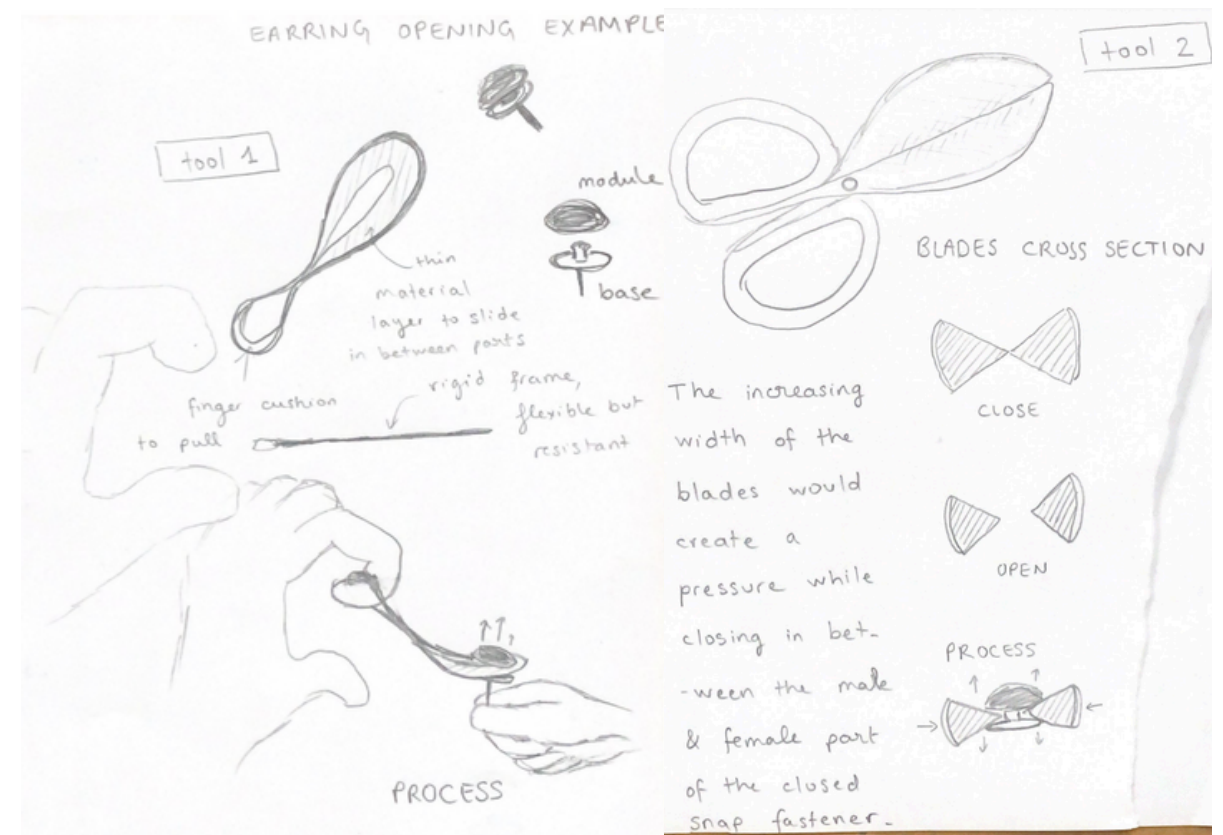 EARRING OPENING EXAMPLE
tool 1
module
base
thin
material
layer to slide
in between parts
finger cushion
to pull
rigid frame,
flexible but
resistant
PROCESS
tool 2
BLADES CROSS SECTION
CLOSE
OPEN
PROCESS
The increasing
width of the
blades would
create a
pressure while
closing in bet-
-ween the male
& female part
of the closed
snap fastener.